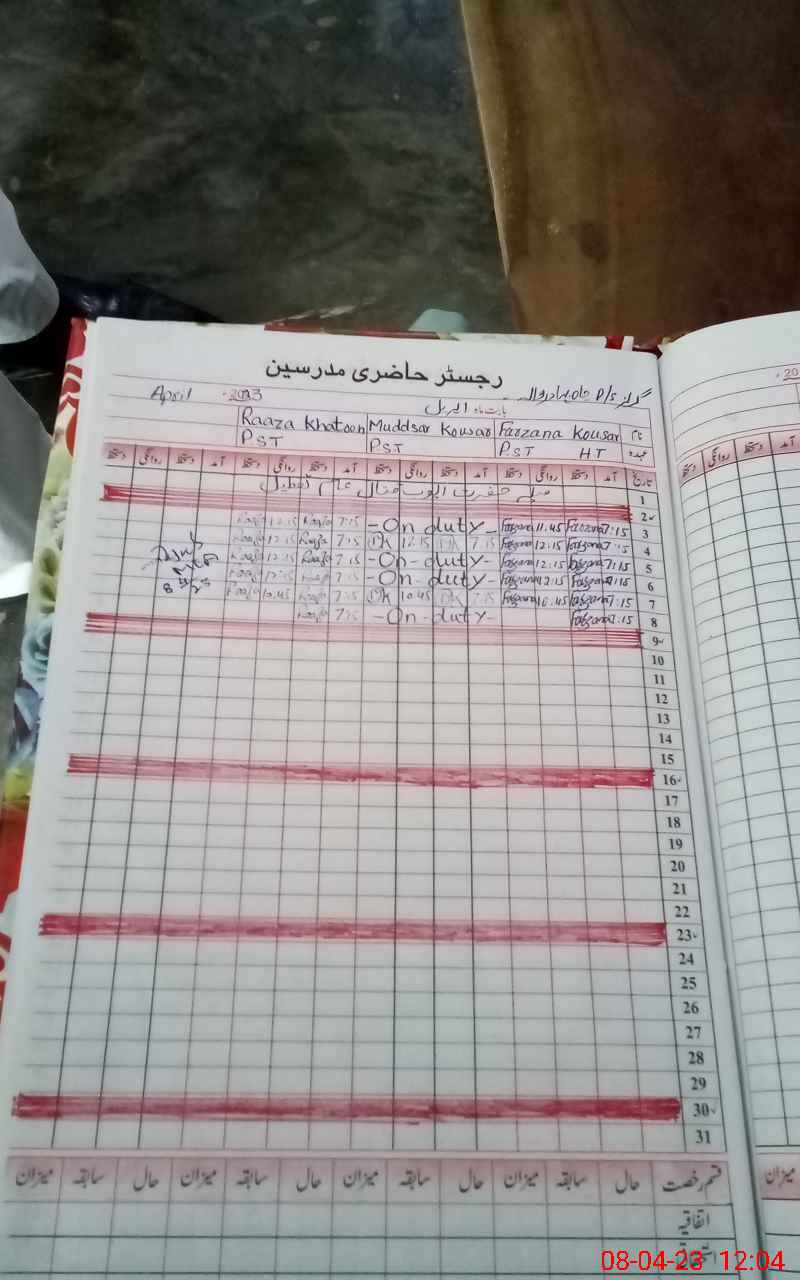 رجسٹر حاضری مدرسین
گرلز P/S چاہ بہادروالہ April 2023
بابت ماہ اپریل
نام Farzana Kousar Muddsar Kousar Raaza Khatoon
عہدہ P.ST HT PST PST
تاریخ آمد دستخط روانگی دستخط آمد دستخط روانگی دستخط آمد دستخط روانگی دستخط آمد دستخط روانگی دستخط
1 حضرت عام تعطیل
2
3 7:15 Farzana 11:45 Farzana -On duty- 7:15 Raaza 12:15 Raaza
4 7:15 Farzana 12:15 Farzana 7:15 MK 12:15 MK 7:15 Raaza 12:15 Raaza
5 7:15 Farzana 12:15 Farzana -On-duty- 7:15 Raaza 12:15 Raaza
6 Farzana 12:15 Farzana -On-duty- 7:15 Raaza 12:15 Raaza
7 7:15 Farzana 10:45 Farzana 7:15 MK 10:45 MK 7:15 Raaza 10:45 Raaza
8 7:15 Farzana -On-duty- 7:15 Raaza
MEA
8 4 23
9
10
11
12
13
14
15
16
17
18
19
20
21
22
23
24
25
26
27
28
29
30
31
قسم رخصت حال سابقہ میزان حال سابقہ میزان حال سابقہ میزان حال سابقہ میزان
اتفاقیہ
20
دستخط روانگی دستخط آمد
میزان
08-04-23 12:04